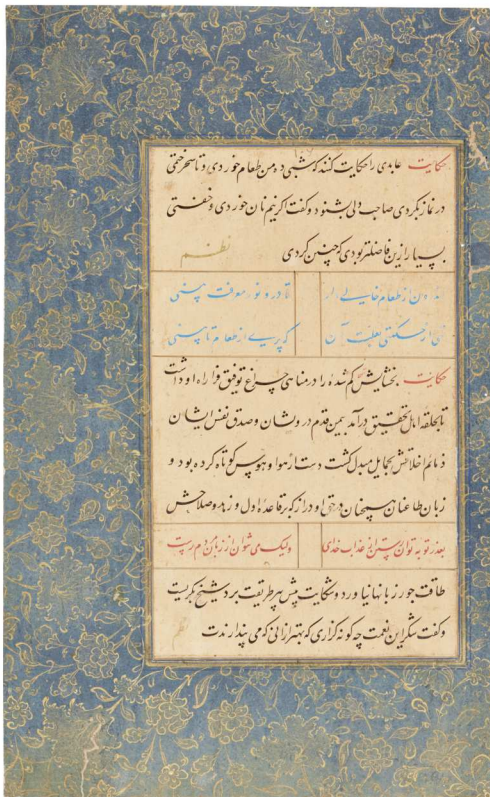 حکایت عابدی را حکایت کنند که شبی ده من طعام خوردی و تا سحر ختمی
در نماز بکردی صاحب دلی بشنود و گفت اگر نیم نان خوردی و خفتی
بسیار ازین فاضلتر بودی که چنین کردی نظم
اندرون از طعام خالی دار تا درو نور معرفت بینی
تهی از حکمتی بعلت آن که پری از طعام تا بینی
حکایت بخشایش گم شده را در مناهی چراغ توفیق فرا راه او داشت
تا بحلقه اهل تحقیق درآمد بیمن قدم درویشان و صدق نفس ایشان
ذمائم اخلاقش بحمایل مبدل گشت دست از هوا و هوس کوتاه کرده بود و
زبان طاعنان همچنان در حق او دراز که بر قاعدهٔ اول و زهد و صلاحش
بعذر توبه توان رستن از عذاب خدای ولیک می نتوان از زبان مردم رست
طاقت جور زبانها نیاورد و شکایت پیش پیر طریقت برد شیخ بگریست
و گفت شکر این نعمت چه گونه گزاری که بهتر ازانی که می پندارندت